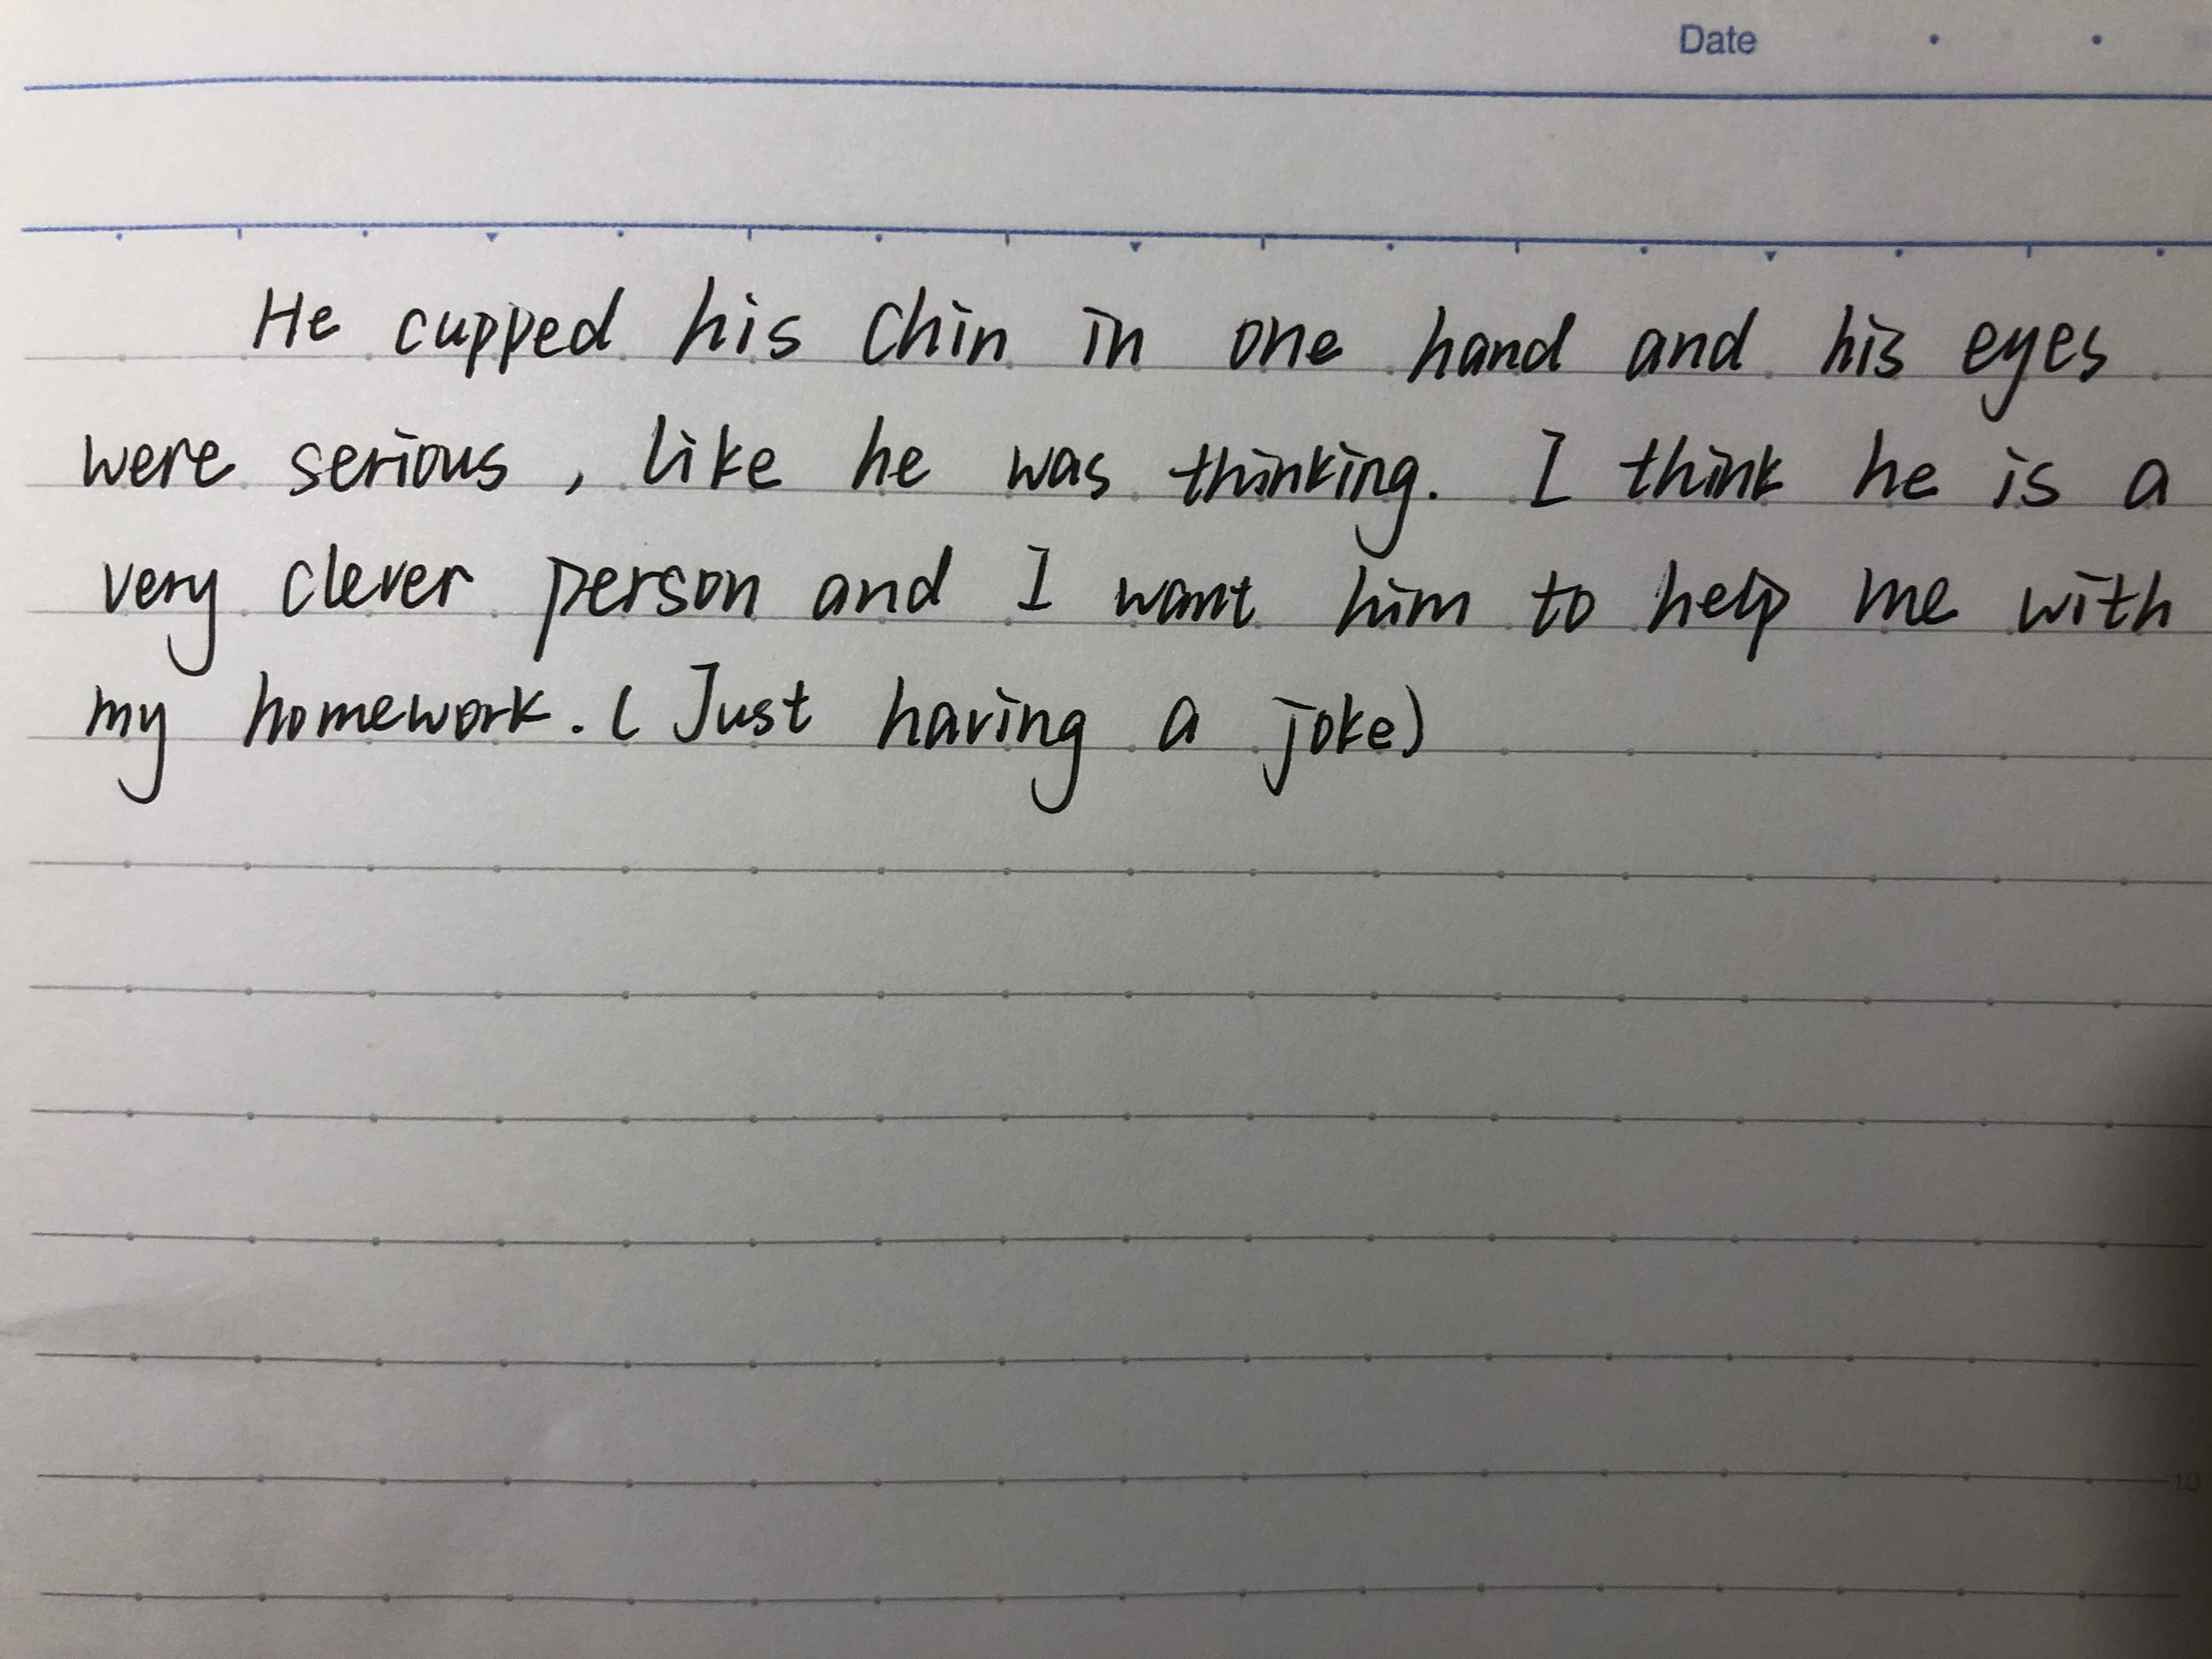 Date
He cupped his chin in one hand and his eyes
were serious, like he was thinking. I think he is a
very clever person and I want him to help me with
my homework. (Just having a joke)
10